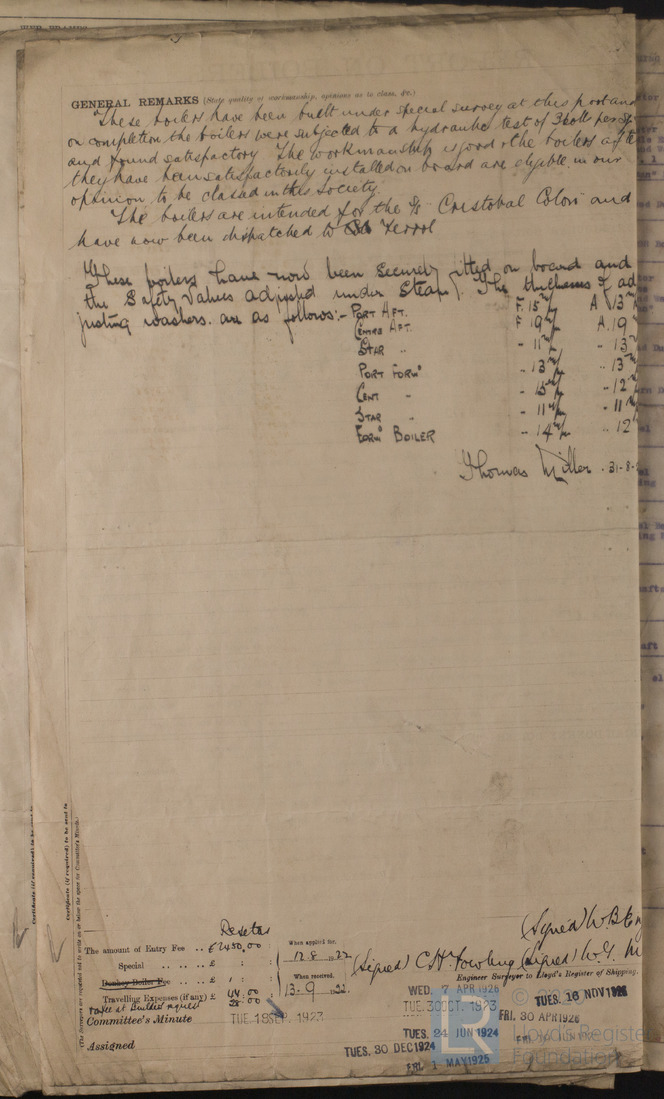 GENERAL REMARKS (State quality of workmanship, opinions as to class, &c.)
These boilers have been built under special survey at this port and
on completion the boilers were subjected to a hydraulic test of
and found satisfactory The workmanship is good & the boilers
they have been satisfactorily installed on board are eligible in our
opinion to be classed in this Society.
The boilers are intended for the S/S Cristobal Colon and
have now been dispatched to Ferrol
These boilers have now been securely fitted on board and
the Safety Valves adjusted under Steam. The thickness of ad
justing washers are as follows:-
PORT AFT. F. 15 m/m A. 13
CENTRE AFT. F 19 m/m A. 19
STAR " - 11 m/m - 13
PORT FORWD - 13 m/m - 13
CENT " - 15 m/m - 12
STAR " - 11 m/m - 11
FORWD BOILER - 14 m/m - 12
Thomas Miller . 31-8-
Certificate (if required) to be sent to
(The Surveyors are requested not to write on or below the space for Committee's Minute.)
Pesetas
The amount of Entry Fee .. £ 2450.00
Special .. .. .. £ : :
Donkey Boiler Fee .. .. £ : :
Travelling Expenses (if any) £
Committee's Minute
Assigned
When applied for,
12 8 1922
When received,
13 - 9 1922
(Signed) W.B.
(Signed) C.H. Fowling (Signed) W.G.
Engineer Surveyor to Lloyd's Register of Shipping.
TUE. 18 SEP. 1923
WED. 7 APR 1926
TUE. 30 OCT. 1923
TUES. 16 NOV 1926
FRI. 30 APR 1926
TUES. 24 JUN 1924
TUES. 30 DEC 1924
FRI. 1 MAY 1925
LR
Lloyd's Register
Foundation